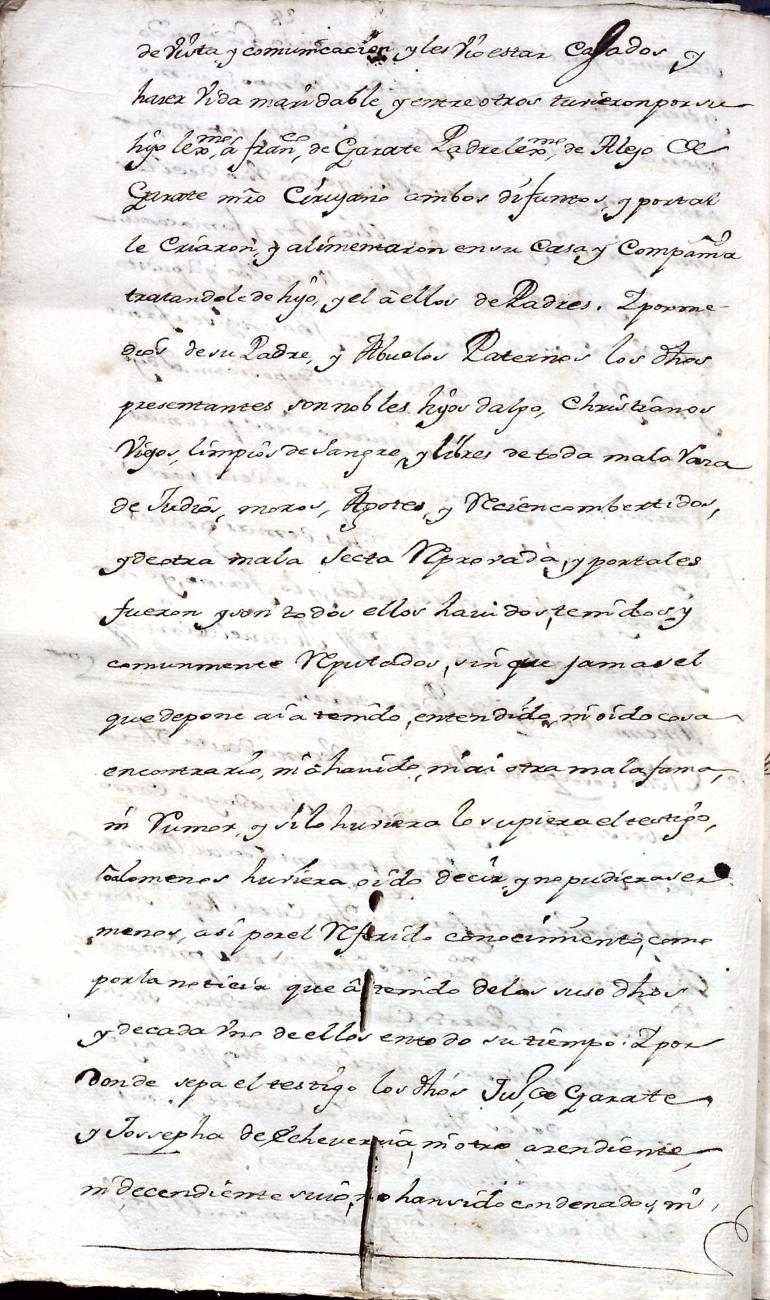 de Vista y comunicación y les Vio estar Casados y
haser Vida maridable y entre otros tuvieron por su
hijo lexmo, â franco, de Garate Padre lexmo, de Alejo de
Garate mro Cirujano ambos difuntos, y portal
le Criaron, y alimentaron en su Casa y Compañia
tratandole de hijo, y el â ellos de Padres. Y por me-
dios de su Padre, y Abuelos Paternos los dhos
presentantes son nobles hijos dalgo, Christianos
Viejos, limpios de Sangre, y libres de toda mala Raza
de Judios, moros, Agotes, y Recien combertidos,
y de otra mala Secta Reprovada, y por tales
fueron y son todos ellos havidos, tenidos, y
comunmente Reputados, sin que jamas el
que depone aia tenido, entendido, ni oido cosa
en contrario, ni â havido, ni ai otra mala fama,
ni Rumor, y si lo huviera lo supiera el testigo,
ô alomenos huviera oido decir, y no pudiera ser
menos, asi por el Referido conocimiento, como
por la noticia que â tenido de los suso dhos
y de cada Vno de ellos en todo su tiempo. Y por
donde sepa el testigo los dhos Jul, de Garate
y Jossepha de Echeverria, ni otro asendiente,
ni decendiente suio, no han sido condenados, ni